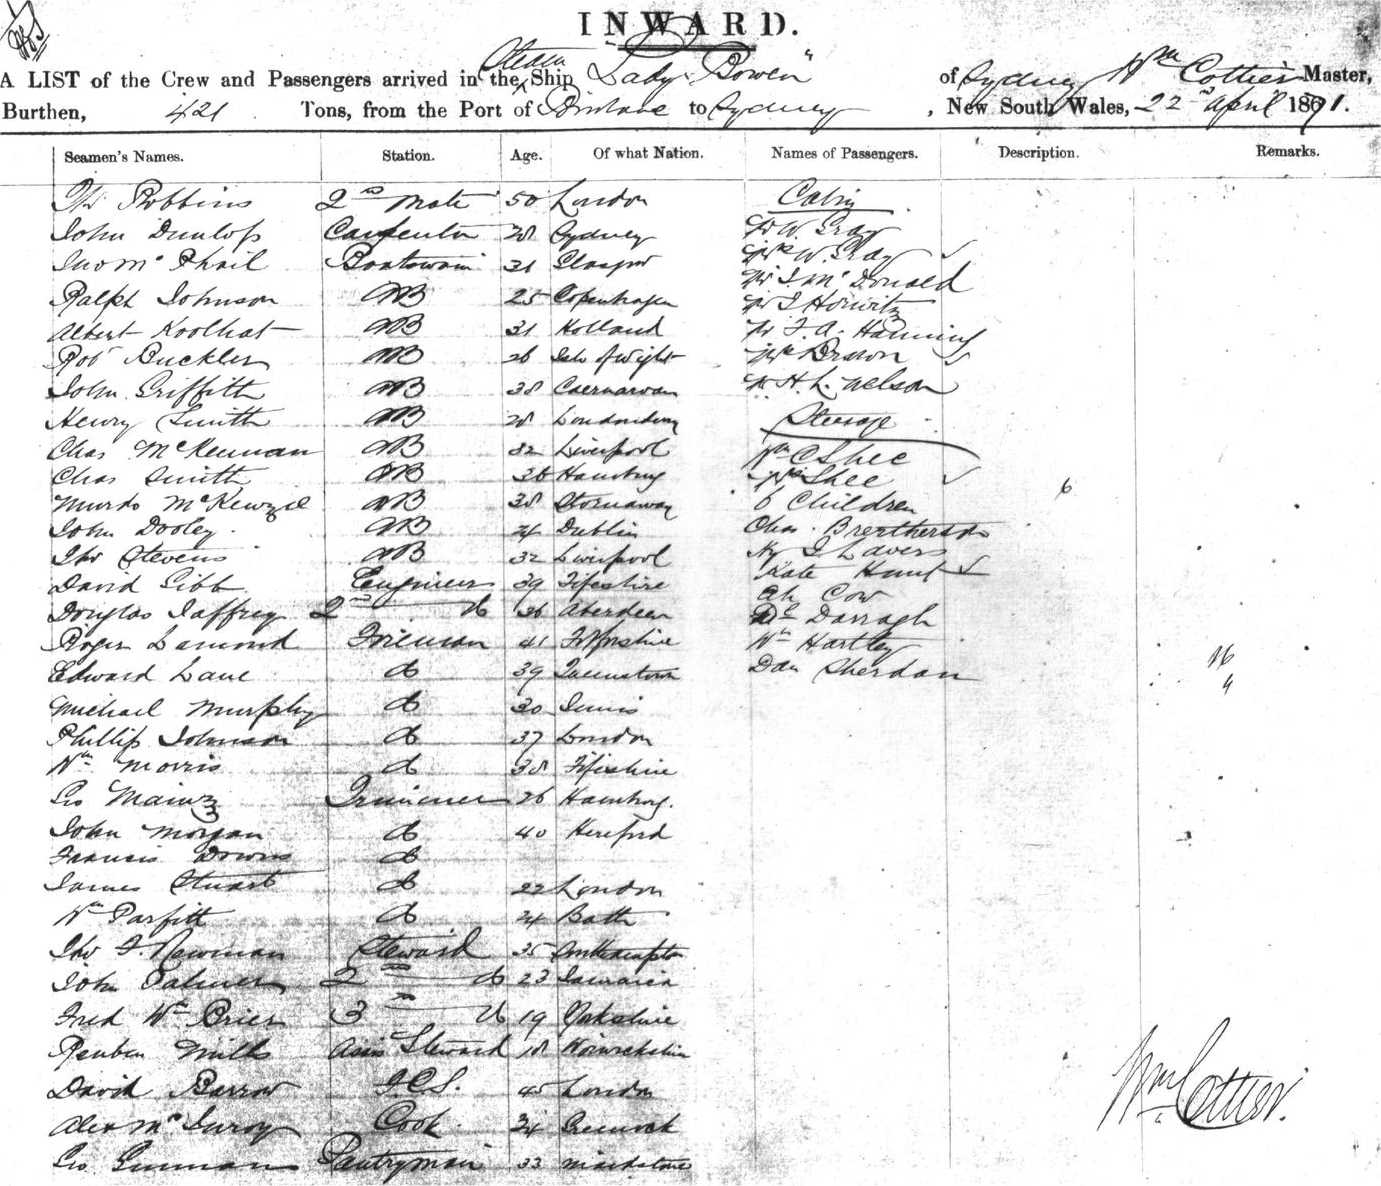 INWARD.
A LIST of the Crew and Passengers arrived in the Steam Ship "Lady Bowen" of Sydney Wm Cottier Master,
Burthen, 421 Tons, from the Port of Brisbane to Sydney, New South Wales, 22nd April 1871.
Seamen's Names. Station. Age. Of what Nation. Names of Passengers. Description. Remarks.
Robbins 2nd Mate 50 London Cabin
John Dunlop Carpenter 28 Sydney Mr W. Gray
Jno McPhail Boatswain 31 Glasgow Mrs W. Gray
Ralph Johnson AB 25 Copenhagen Mr J McDonald
Albert Koolhat AB 31 Holland Mr J Horwitz
Robt Buckler AB 26 Isle of Wight Mr F. A. Hanning
John Griffith AB 38 Caernarvan Mrs Brown
Henry Smith AB 28 Londonderry Mr H. L. Nelson
Chas McKennan AB 32 Liverpool Steerage
Chas Smith AB Hamburg Wm C Shee
Murdo McKenzie AB 38 Stornaway Mrs Shee
John Dooley AB 24 Dublin 6 Children 6
Thos Stevens AB 32 Liverpool Chas.
David Gibb Engineer 39 Fifeshire Hy J Lavers
Douglas Jaffrey 2nd do 26 Aberdeen Kate Hunt
Roger Lamond Fireman 41 Ah Cow
Edward Lane do 39 Queenstown Darragh
Michael Murphy do 30 Wm Hartley
Phillip Johnson do 37 London Dan Sherdan
Wm Morris do 38 Fifeshire 16
Geo Mainz Trimmer 26 Hamburg. 4
John Morgan do 40 Hereford
Francis Downs do
James Stuart do 22 London
Wm Parfitt do 24 Bath
Thos F. Newman Steward 35 Southampton
John Palmer 2nd do 23 Jamaica
Fred Wm Brier 3rd do 19 Yorkshire
Reuben Mills Assis Steward 18 Warwickshire
David Barrow 45 London
Alex McInroy Cook 34 Greenock
Geo Pantryman 33 Maidstone
Wm Cottier.